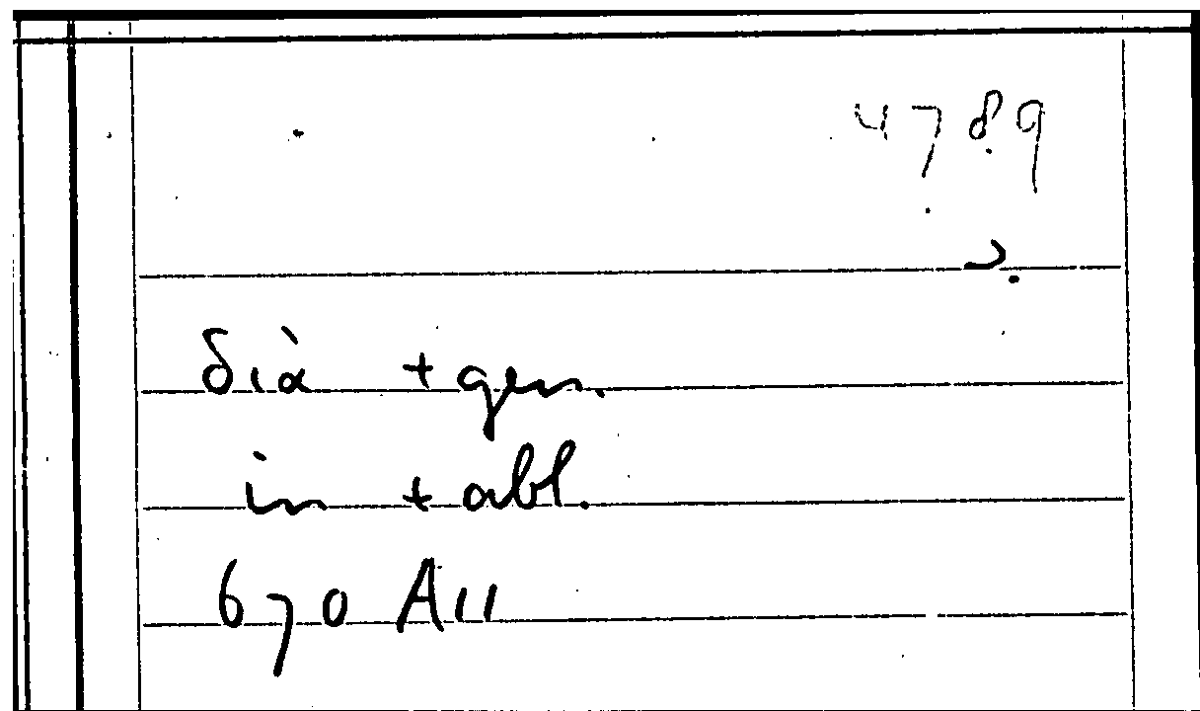 4789
διὰ + gen.
in + abl.
670 A11